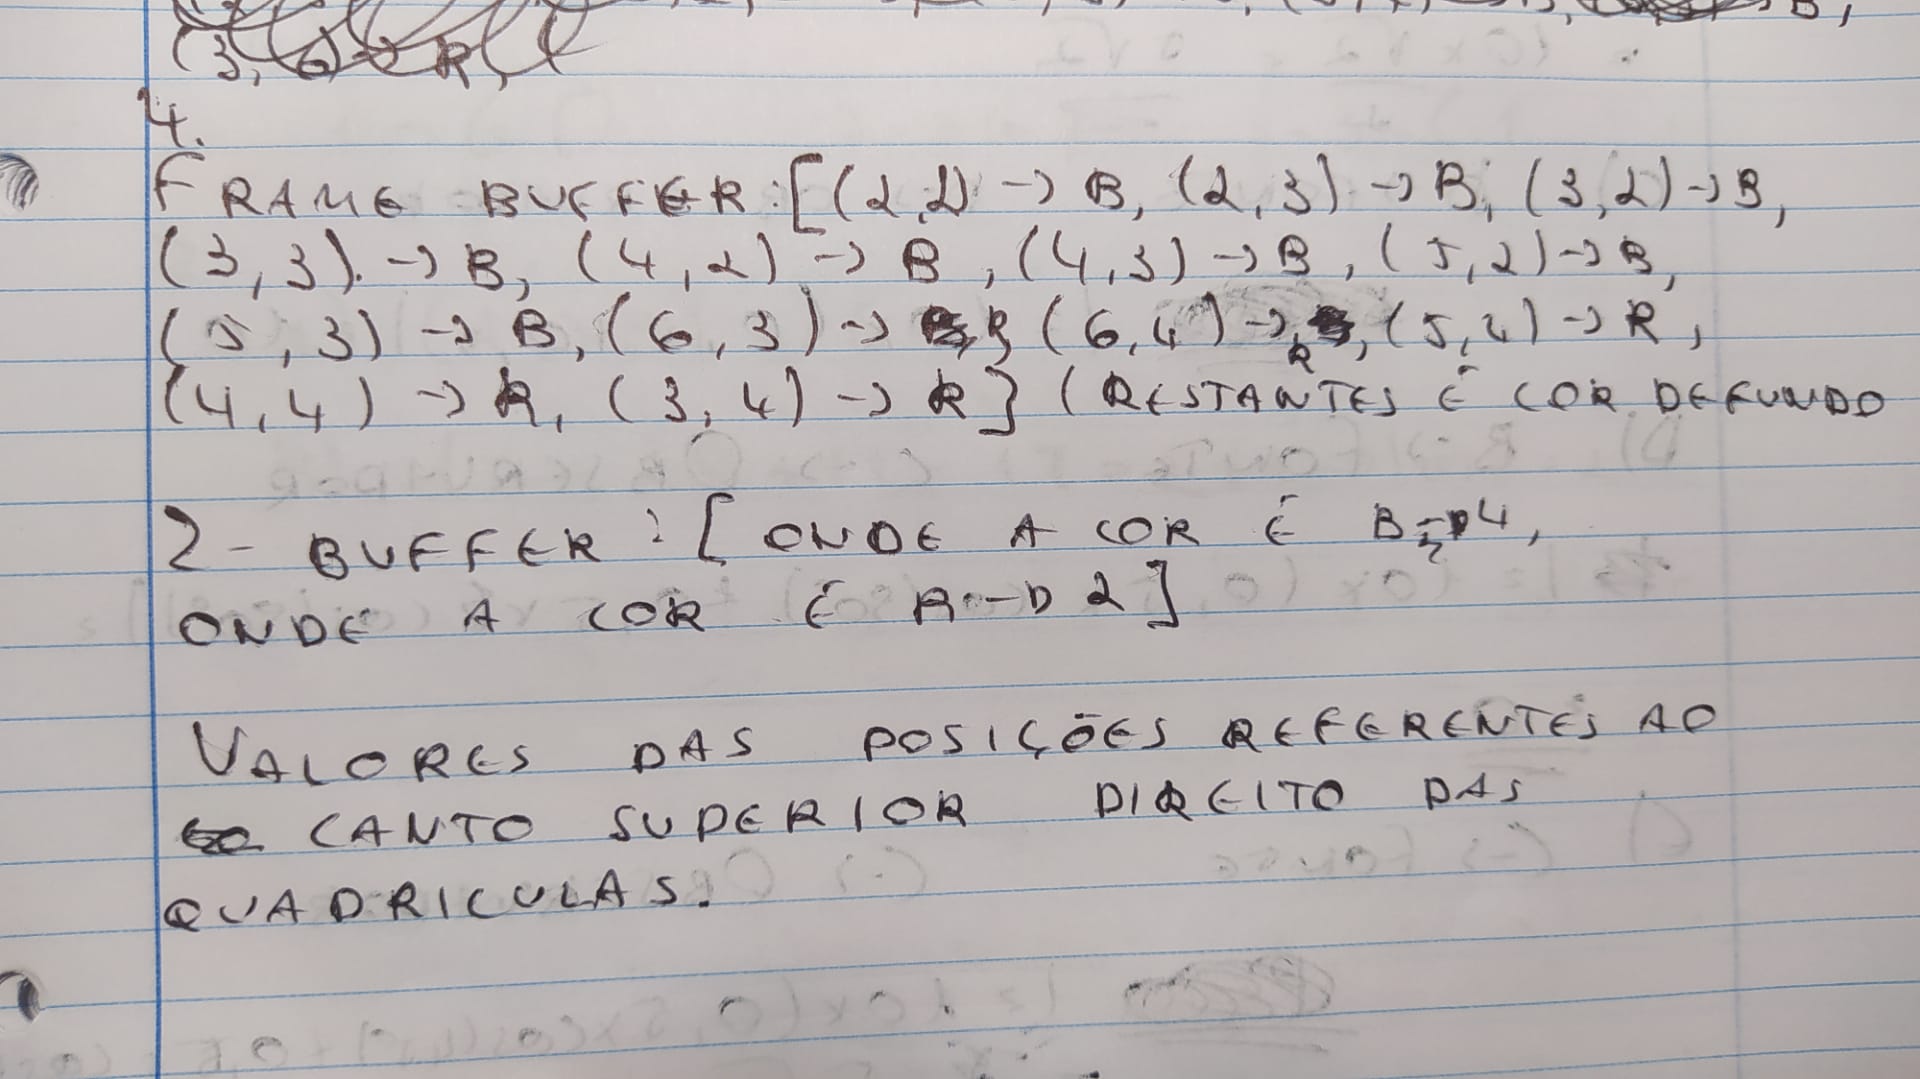 (3, 6) → R,
4.
FRAME BUFFER: [(2,2) → B, (2,3) → B, (3,2) → B,
(3,3). → B, (4,2) → B, (4,3) → B, (5,2) → B,
(5,3) → B, (6,3) → R, (6,4) → R, (5,4) → R,
(4,4) → R, (3,4) → R] (RESTANTES É COR DE FUNDO
Z- BUFFER: [ONDE A COR É B → 4,
ONDE A COR É R → 2]
VALORES DAS POSIÇÕES REFERENTES AO
CANTO SUPERIOR DIREITO DAS
QUADRICULAS.